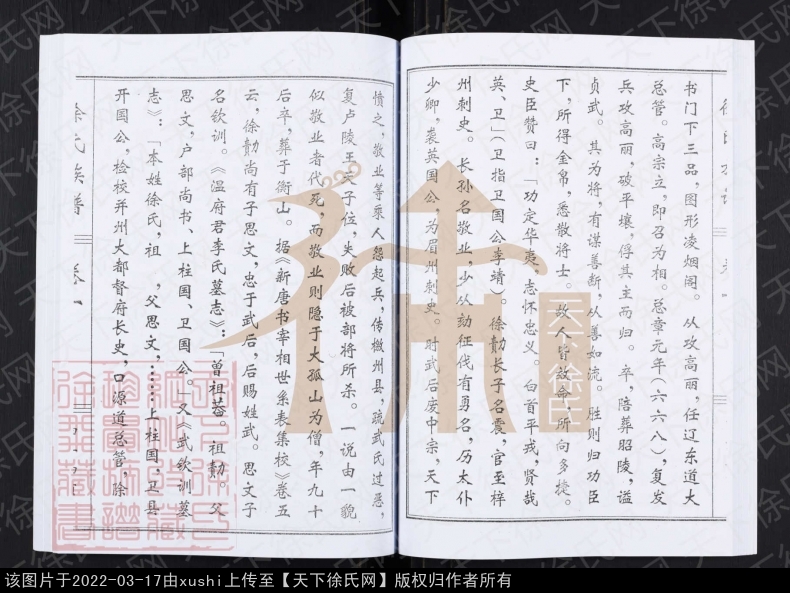 书门下三品，图形凌烟阁。从攻高丽，任辽东道大
总管。高宗立，即召为相。总章元年（六六八），复发
兵攻高丽，破平壤，俘其主而归。卒，陪葬昭陵，谥
贞武。其为将，有谋善断，从善如流。胜则归功臣
下，所得金帛，悉散将士。故人皆效命，所向多捷。
史臣赞曰：「功定华夷，志怀忠义。白首平戎，贤哉
英、卫」（卫指卫国公李靖）。徐勣长子名震，官至梓
州刺史。长孙名敬业，少从勣征伐有勇名，历太仆
少卿，袭英国公，为眉州刺史。时武后废中宗，天下
愤之，敬业等乘人怨起兵，传檄州县，疏武氏过恶，
复卢陵王天子位，失败后被部将所杀。一说由一貌
似敬业者代死，而敬业则隐于大孤山为僧，年九十
后卒，葬于衡山。据《新唐书宰相世系表集校》卷五
云，徐勣尚有子思文，忠于武后，后赐姓武。思文子
名钦训。《温府君李氏墓志》：「曾祖盖。祖勣。父
思文，户部尚书、上柱国、卫国公。」又《武钦训墓
志》：「本姓徐氏，祖　，父思文，……上柱国，卫县
开国公，检校并州大都督府长史，口源道总管，除
徐氏族谱　卷一
天下徐氏
天下徐氏网
该图片于2022-03-17由xushi上传至【天下徐氏网】版权归作者所有